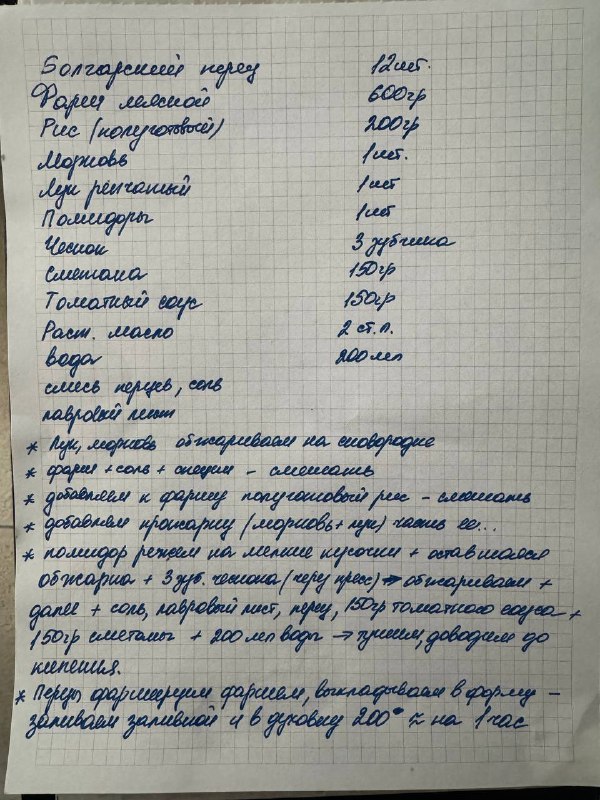 Болгарский перец 12шт.
Фарш мясной 600гр
Рис (полуготовый) 200гр
Морковь 1шт.
Лук репчатый 1шт
Помидоры 1шт
Чеснок 3 зубчика
Сметана 150гр
Томатный соус 150гр
Раст. масло 2 ст.л.
Вода 200мл
смесь перцев, соль
лавровый лист
* Лук, морковь обжариваем на сковородке
* фарш + соль + специи - смешать
* добавляем к фаршу полуготовый рис - смешать
* добавляем прожарку (морковь + лук) часть ее...
* помидор режем на мелкие кусочки + оставшаяся
обжарка + 3 зуб. чеснока (через пресс) → обжариваем +
далее + соль, лавровый лист, перец, 150гр томатного соуса +
150гр сметаны + 200мл воды → тушим, доводим до
кипения.
* Перцы фаршируем фаршем, выкладываем в форму -
заливаем заливкой и в духовку 200° ≈ на 1 час